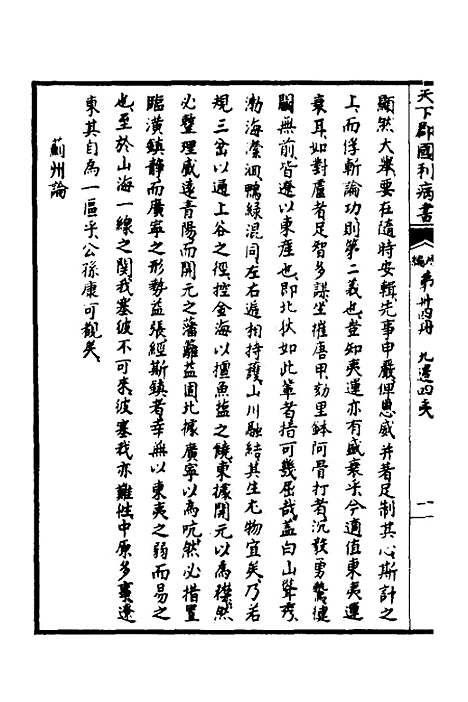 天下郡國利病書
編 第卅四冊 九邊四夷
顯然大舉要在隨時安輯先事申嚴俾恩威并著足制其心斯計之
上而俘斬論功則第二義也豈知夷運亦有盛衰乎今適值東夷運
衰耳如對盧者足智多謀坐摧唐甲刻里鉢阿骨打者沉毅勇驁捷
闘無前皆遼以東產也即北狄如此輩者指可幾屈哉蓋白山聳秀
渤海瀠洄鴨綠混同左右遞相持護山川融結其生尤物宜矣乃若
規三岔以通上谷之徑控金海以擅魚鹽之饒東據開元以為襟然
必整理威遠青陽而開元之藩籬益固北據廣寧以為吭然必措置
臨潢鎮靜而廣寧之形勢益張經斯鎮者幸無以東夷之弱而易之
也至於山海一線之関我塞彼不可來彼塞我亦難往中原多事遼
東其自為一區乎公孫康可覩矣
薊州論